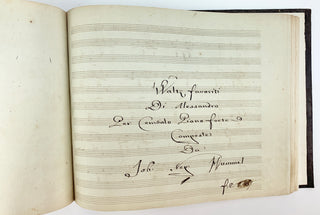 Waltz favoriti
Di Alessandro
Per Cembalo Piano-Forte
Composte
Da
Joh: Nep: Hummel